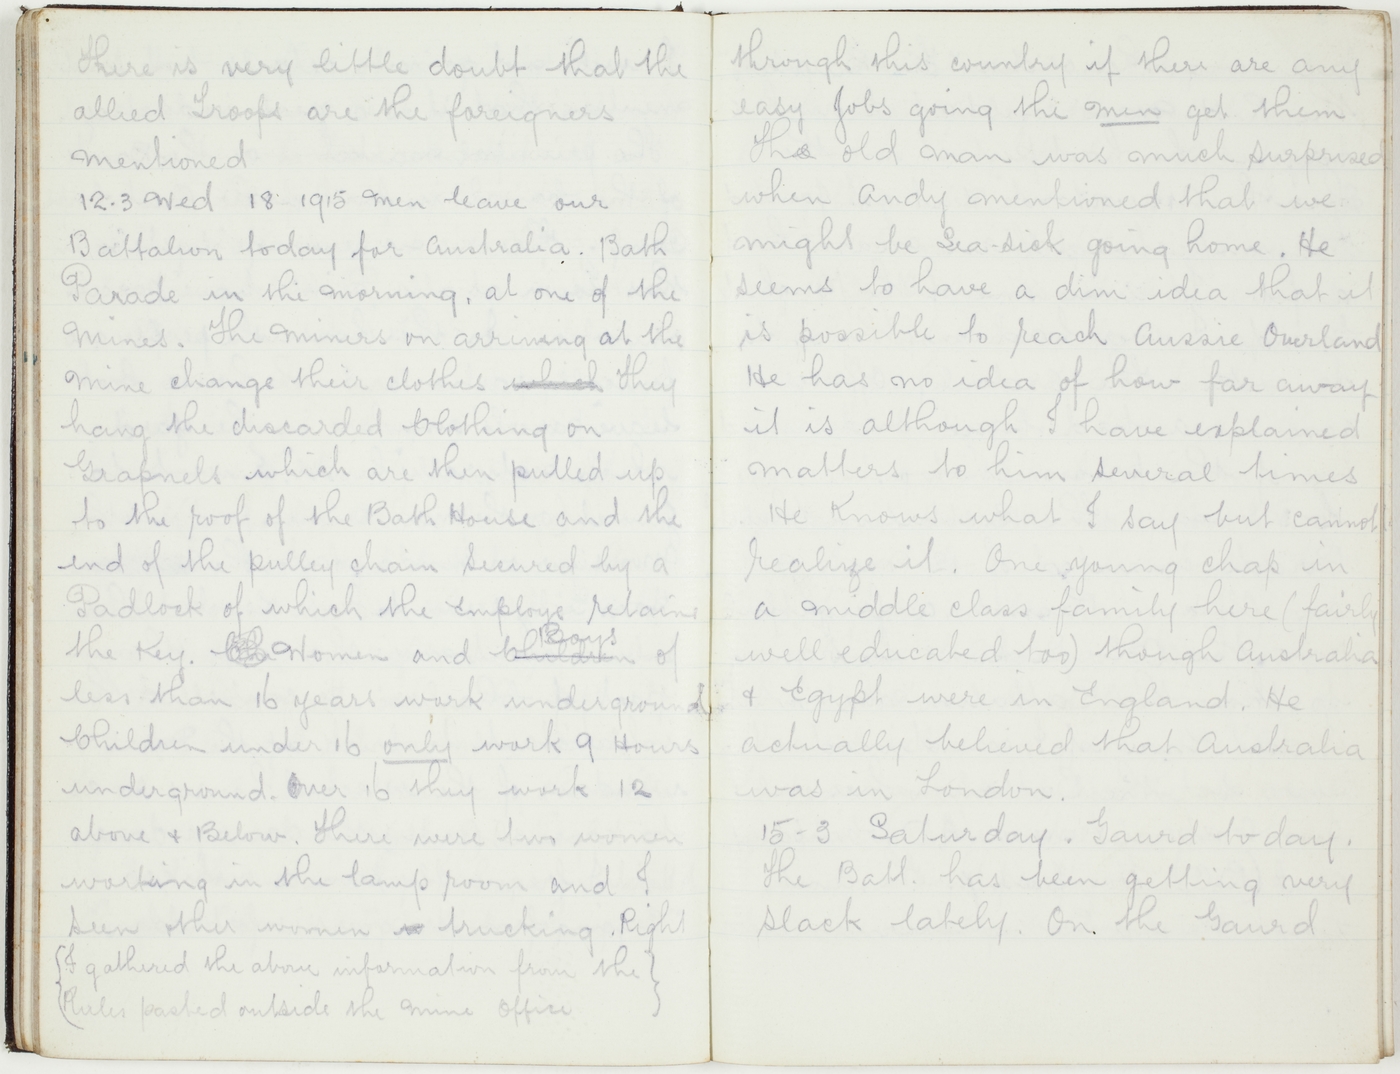 There is very little doubt that the
allied Troops are the foreigners
mentioned
12.3 Wed 18 1915 men leave our
Battalion today for Australia. Bath
Parade in the morning, at one of the
mines. The miners on arriving at the
mine change their clothes which They
hang the discarded Clothing on
Grapnels which are then pulled up
to the roof of the Bath House and the
end of the pulley chain secured by a
Padlock of which the Employe retains
the Key. Women and Children Boys of
less than 16 years work underground
Children under 16 only work 9 Hours
underground. Over 16 they work 12
above & Below. There were two women
working in the lamp room and I
seen other women trucking. Right
{I gathered the above information from the}
{Rules posted outside the mine Office}
through this country if there are any
easy Jobs going the men get them
The old man was much surprised
when Andy mentioned that we
might be Sea-sick going home. He
seems to have a dim idea that it
is possible to reach Aussie Overland
He has no idea of how far away
it is although I have explained
matters to him several times
He Knows what I say but cannot
realize it. One young chap in
a middle class family here (fairly
well educated too) though Australia
& Egypt were in England. He
actually believed that Australia
was in London.
15-3 Saturday. Gaurd today.
The Batt. has been getting very
slack lately. On the Gaurd